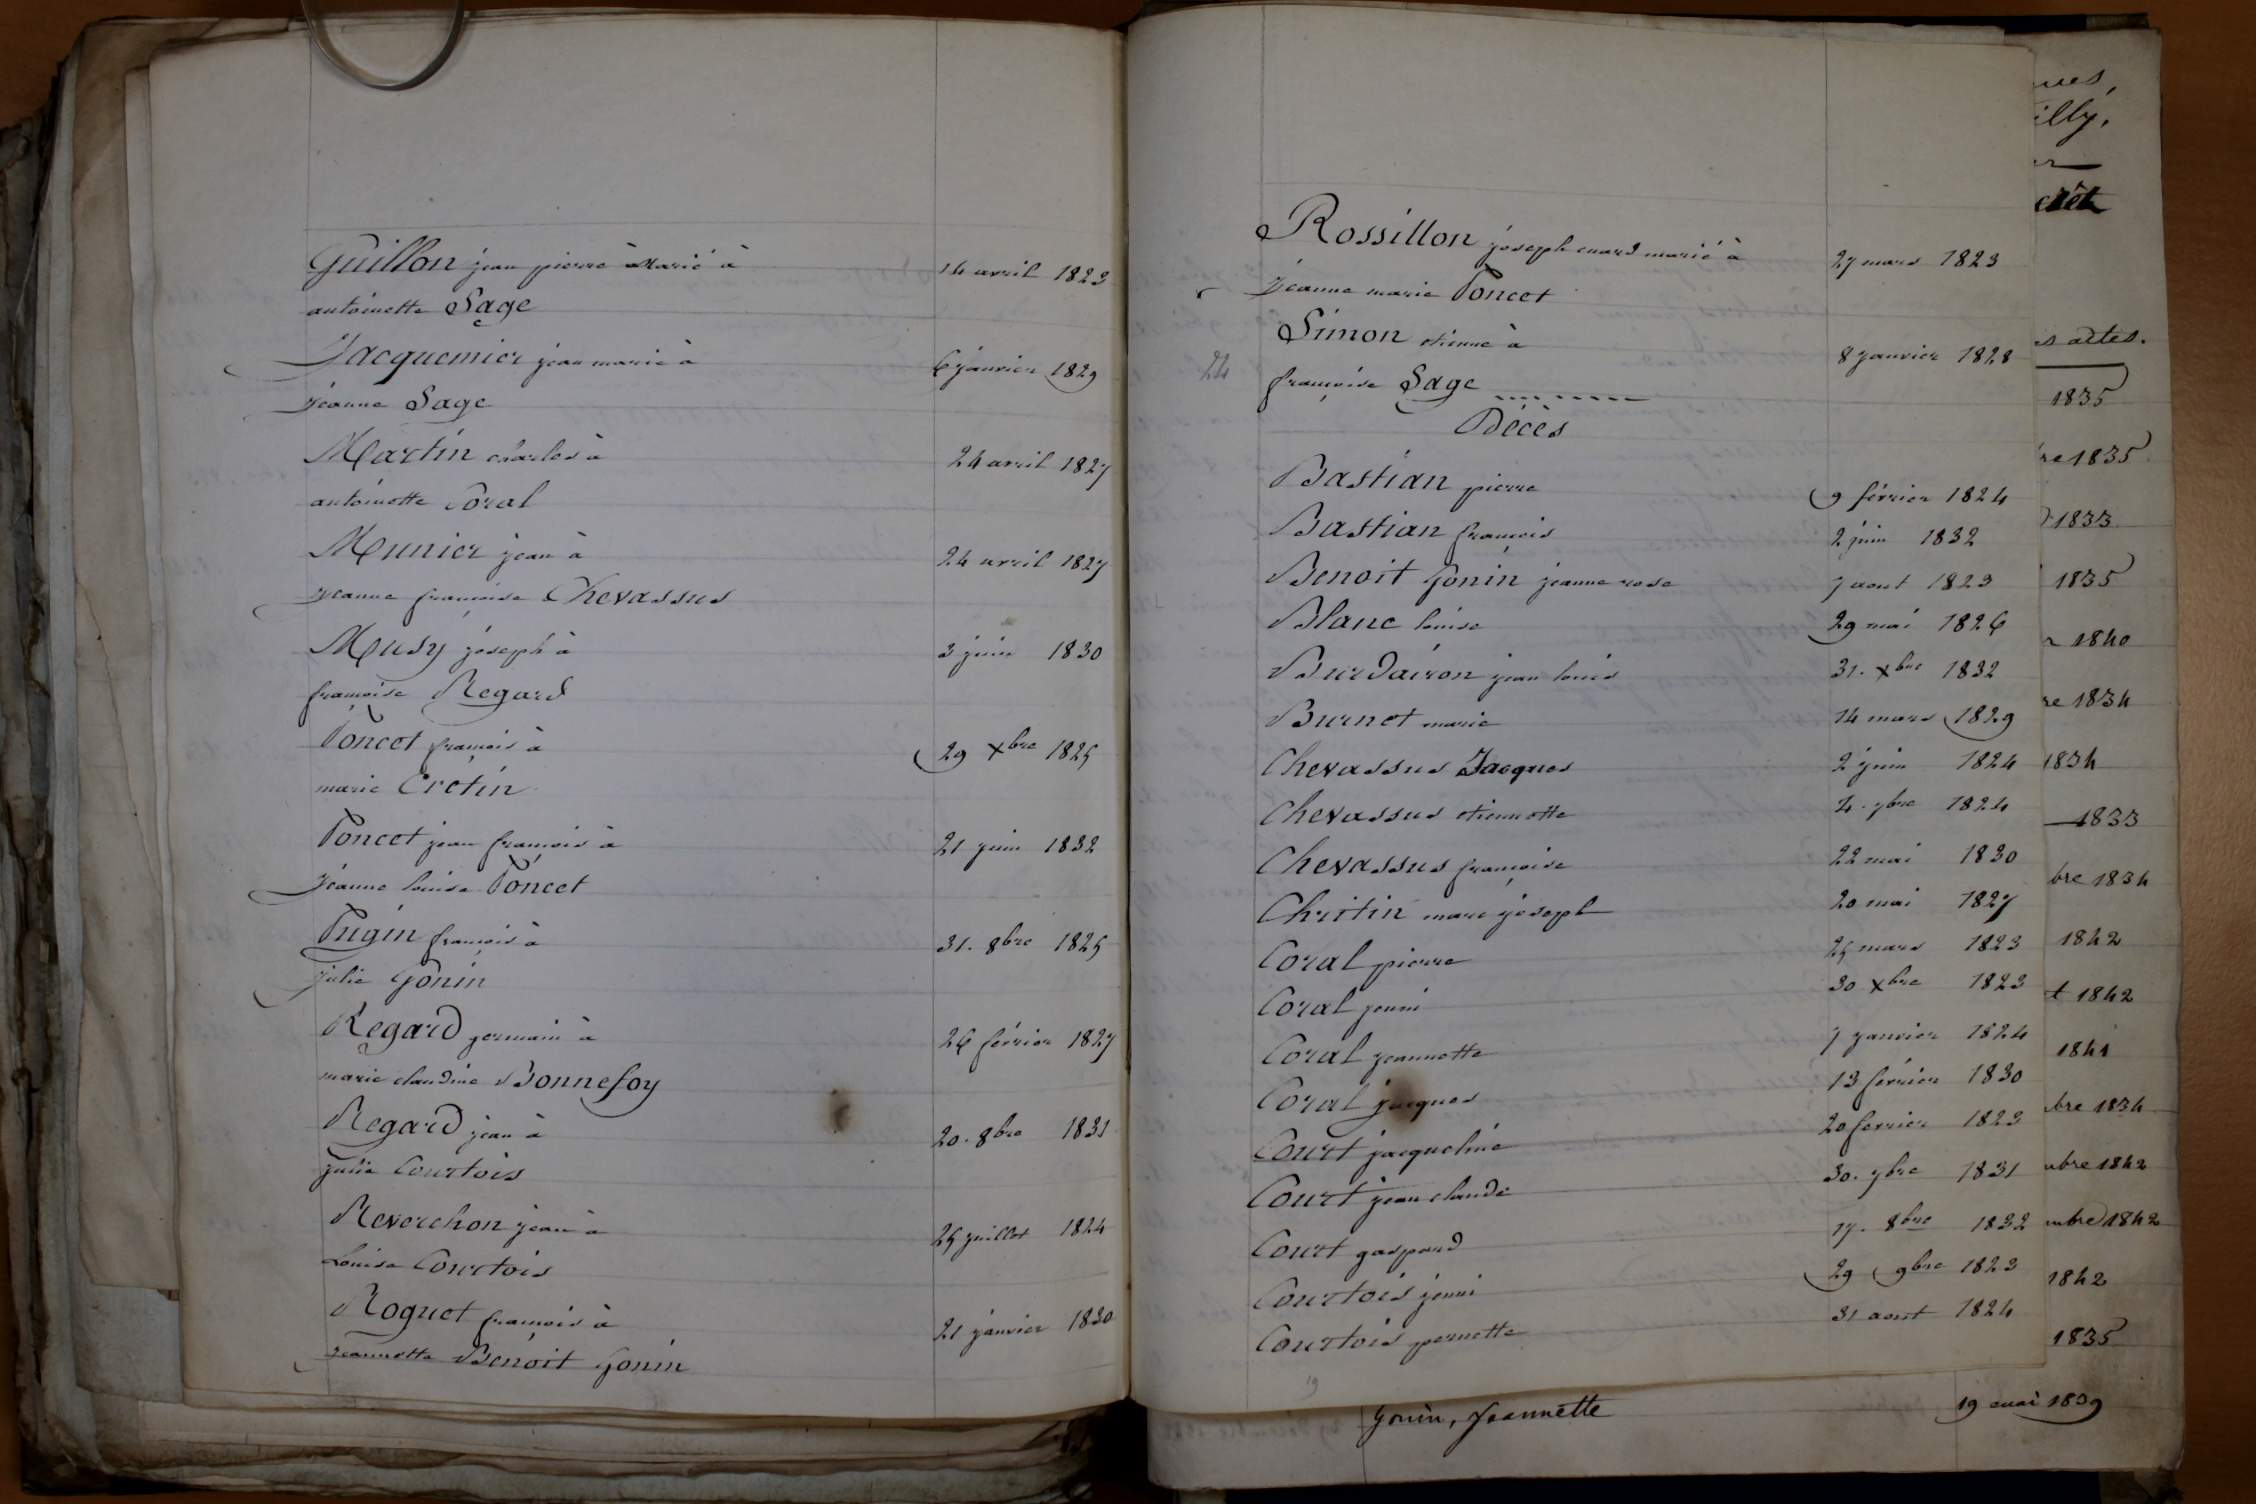 Guillon jean pierre à
14 avril 1823
antoinette Sage
Jacquemier jean marie à
6 janvier 1829
jeanne Sage
Martin charles à
24 avril 1827
antoinette Coral
Munier jean à
24 avril 1827
jeanne françoise Chevassus
Musy joseph à
3 juin 1830
françoise Regard
Poncet françois à
29 xbre 1825
marie Cretin
Poncet jean françois à
21 juin 1832
jeanne louise Poncet
Pugin françois à
31. 8bre 1825
julie Gonin
Regard germain à
26 février 1827
marie claudine Bonnefoy
Regard jean à
20. 8bre 1831
julie Courtois
Reverchon jean à
25 juillet 1824
Louise Courtois
Roguet françois à
21 janvier 1830
jeannette Benoit Gonin
Rossillon joseph marié à
27 mars 1823
jeanne marie Poncet
Simon etienne à
8 janvier 1828
24
françoise Sage
Décès
Bastian pierre
9 février 1824
Bastian françois
2 juin 1832
Benoit Gonin jeanne rose
7 aout 1823
Blanc louise
29 mai 1826
Burdairon jean louis
31. xbre 1832
Burnet marie
14 mars 1829
Chevassus Jacques
2 juin 1824
Chevassus etiennette
4. 7bre 1824
Chevassus françoise
22 mai 1830
Chritin marc joseph
20 mai 1827
Coral pierre
25 mars 1823
Coral jenni
30 xbre 1823
Coral jeannette
7 janvier 1824
Coral jacques
13 février 1830
Court jacqueline
20 fevrier 1823
Court jean claude
30. 7bre 1831
Court gaspard
17. 8bre 1832
Courtois jenni
29 9bre 1823
Courtois pernette
31 aout 1824
19
Gonin, Jeannette
19 mai 1839
ues,
illy,
er
crêt
s actes.
1835
re 1835
1833
1835
1840
re 1834
1834
1833
bre 1834
1842
t 1842
1841
bre 1834
mbre 1842
mbre 1842
1842
1835